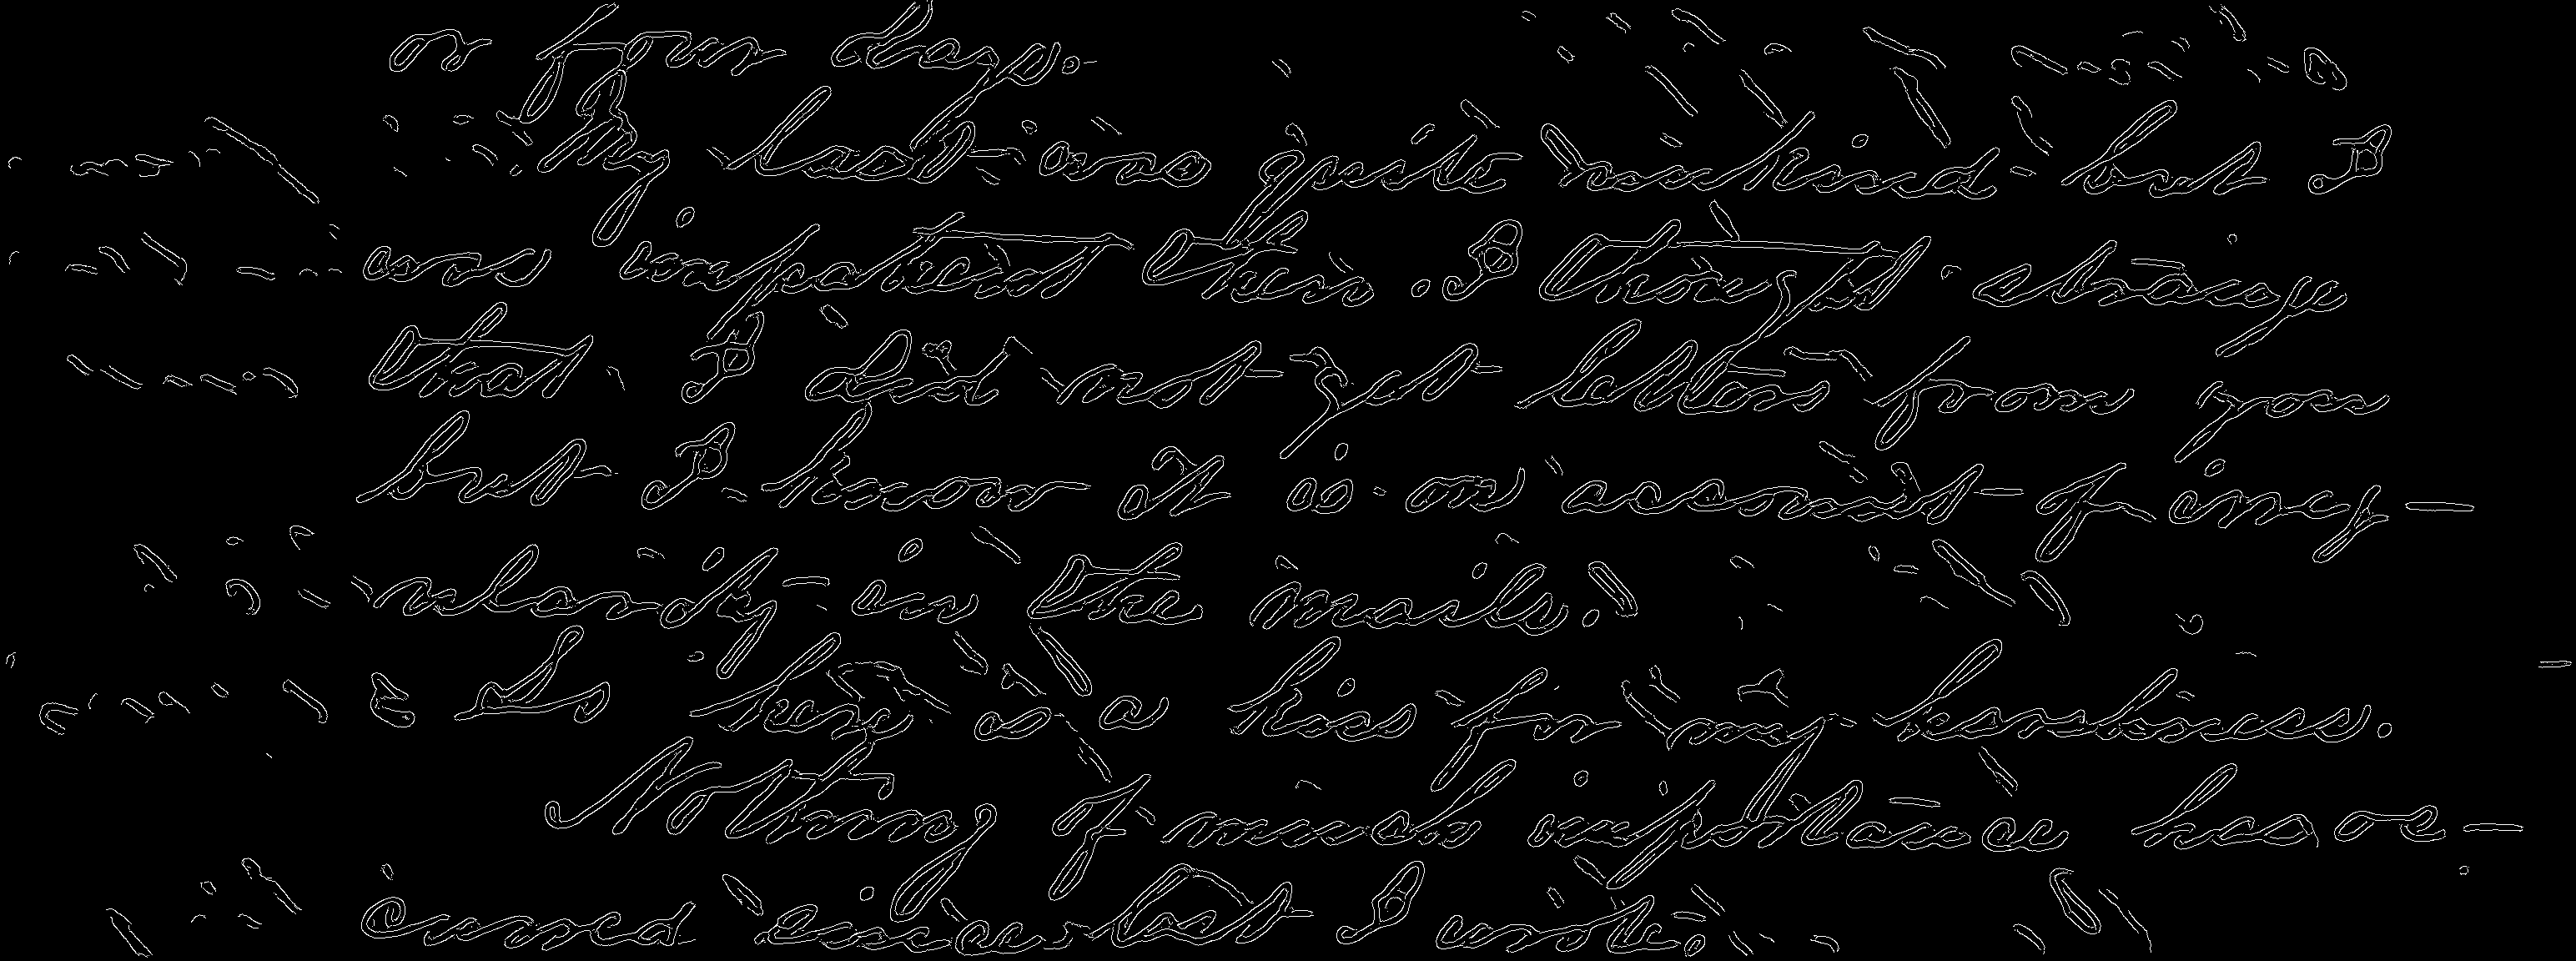 or four days.
My last was quite unkind but I
was impatient then. I thought strange
that I did not get letters from you
but I know it is on account of irreg-
ularity in the mails.
So here is a kiss for my harshness.
Nothing of much importance have
since last I wrote.